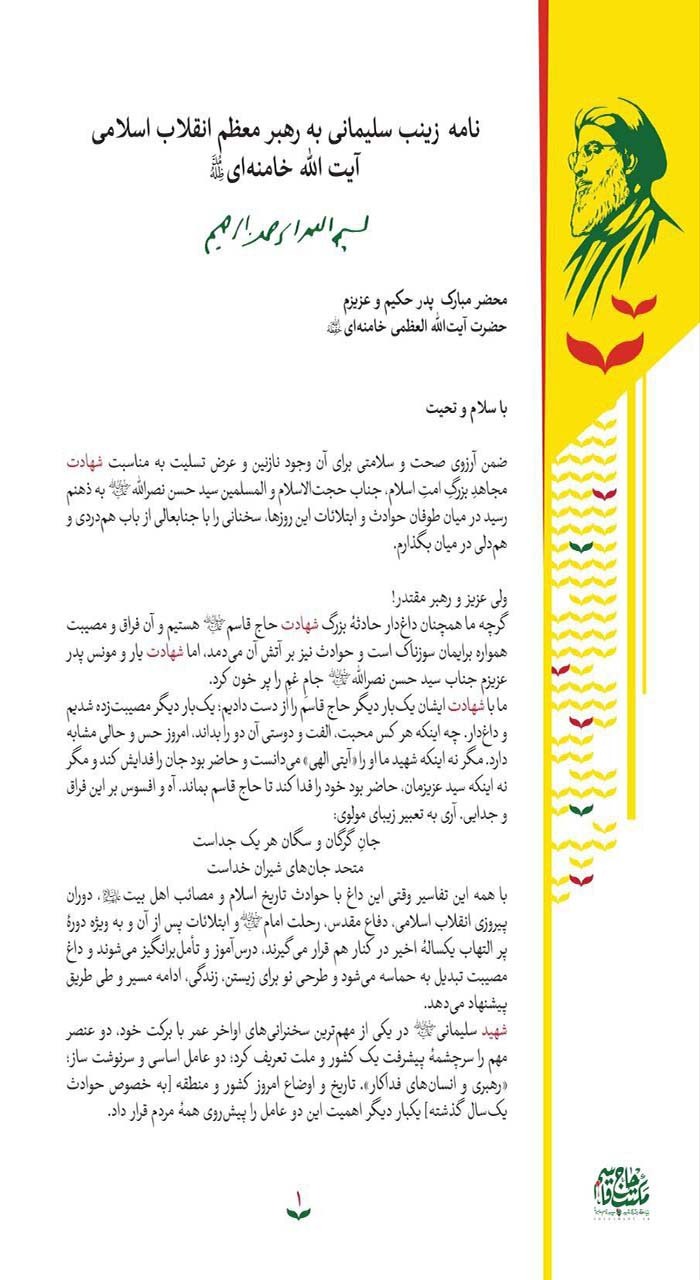 نامه زینب سلیمانی به رهبر معظم انقلاب اسلامی
آیت الله خامنه‌ای
بسم الله الرحمن الرحیم
محضر مبارک پدر حکیم و عزیزم
حضرت آیت‌الله العظمی خامنه‌ای
با سلام و تحیت
ضمن آرزوی صحت و سلامتی برای آن وجود نازنین و عرض تسلیت به مناسبت شهادت
مجاهدِ بزرگِ امتِ اسلام، جناب حجت‌الاسلام و المسلمین سید حسن نصرالله به ذهنم
رسید در میان طوفان حوادث و ابتلائات این روزها، سخنانی را با جنابعالی از باب هم‌دردی و
هم‌دلی در میان بگذارم.
ولی عزیز و رهبر مقتدر!
گرچه ما همچنان داغ‌دار حادثهٔ بزرگ شهادت حاج قاسم هستیم و آن فراق و مصیبت
همواره برایمان سوزناک است و حوادث نیز بر آتش آن می‌دمد، اما شهادت یار و مونس پدر
عزیزم جناب سید حسن نصرالله جامِ غمِ را پر خون کرد.
ما با شهادت ایشان یک‌بار دیگر حاج قاسم را از دست دادیم؛ یک‌بار دیگر مصیبت‌زده شدیم
و داغ‌دار. چه اینکه هر کس محبت، الفت و دوستی آن دو را بداند، امروز حس و حالی مشابه
دارد. مگر نه اینکه شهید ما او را «آیتی الهی» می‌دانست و حاضر بود جان را فدایش کند و مگر
نه اینکه سید عزیزمان، حاضر بود خود را فدا کند تا حاج قاسم بماند. آه و افسوس بر این فراق
و جدایی. آری به تعبیر زیبای مولوی:
جانِ گرگان و سگان هر یک جداست
متحد جان‌های شیران خداست
با همه این تفاسیر وقتی این داغ با حوادث تاریخ اسلام و مصائب اهل بیت، دوران
پیروزی انقلاب اسلامی، دفاع مقدس، رحلت امام و ابتلائات پس از آن و به ویژه دورهٔ
پر التهاب یکسالهٔ اخیر در کنار هم قرار می‌گیرند، درس‌آموز و تأمل‌برانگیز می‌شوند و داغ
مصیبت تبدیل به حماسه می‌شود و طرحی نو برای زیستن، زندگی، ادامه مسیر و طی طریق
پیشنهاد می‌دهد.
شهید سلیمانی در یکی از مهم‌ترین سخنرانی‌های اواخر عمر با برکت خود، دو عنصر
مهم را سرچشمهٔ پیشرفت یک کشور و ملت تعریف کرد؛ دو عامل اساسی و سرنوشت ساز؛
«رهبری و انسان‌های فداکار». تاریخ و اوضاع امروز کشور و منطقه [به خصوص حوادث
یک‌سال گذشته] یکبار دیگر اهمیت این دو عامل را پیش‌روی همهٔ مردم قرار داد.
مکتب حاج قاسم
۱